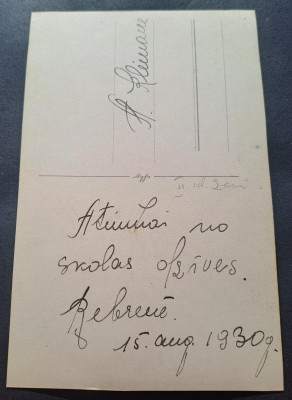 A. Kleimane
Atmiņai no
skolas dzīves.
Bebrenē.
15. aug. 1930 g.